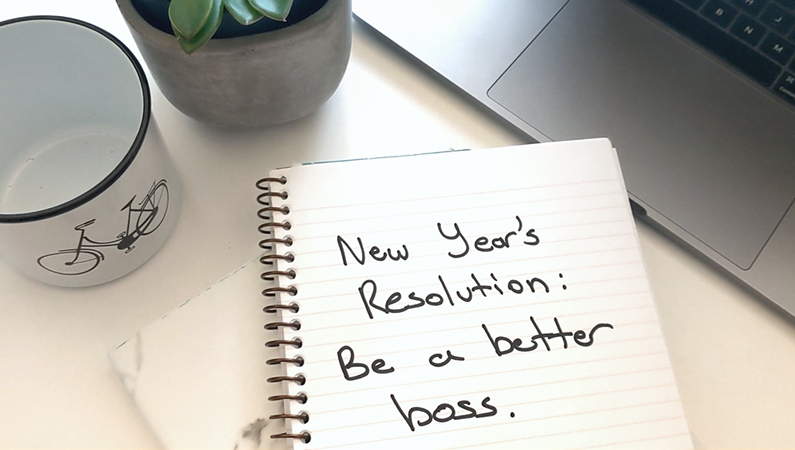 New Year's
Resolution:
Be a better
boss.